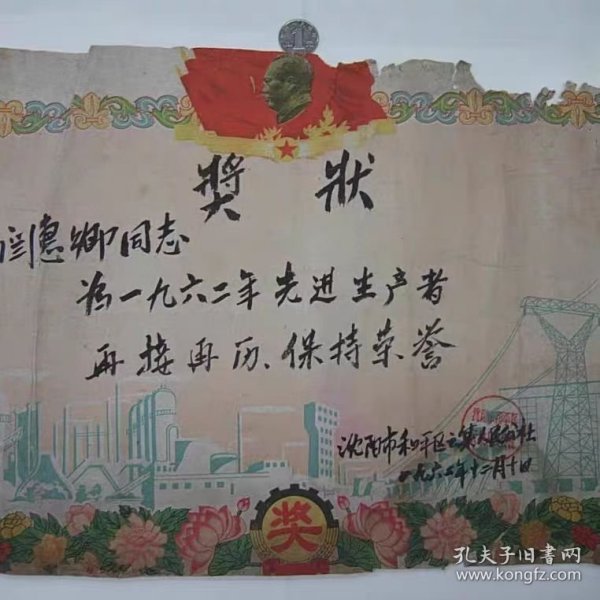 奬狀
惠卿同志
为一九六二年先进生产者
再接再历、保持荣誉
沈阳市和平区人民公社
一九六二年十二月十日
奖
孔夫子旧书网
www.kongfz.com